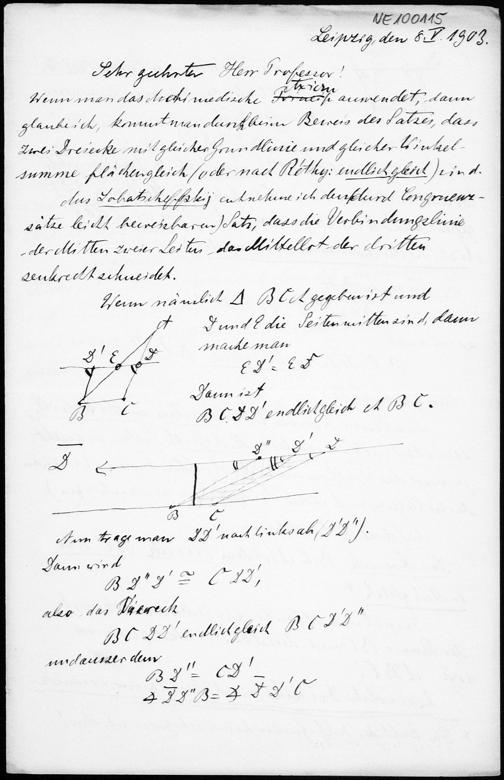 NE100115
Leipzig, den 8. V. 1903.
Sehr geehrter Herr Professor!
Wenn man das Archimedische anwendet, dann
glaube ich, kommt man durch beim Beweis des Satzes, dass
zwei Dreiecke mit gleicher Grundlinie und gleicher Winkel-
summe flächengleich (oder nach Réthy: endlichgleich) sind.
Aus Lobatscheffskij entnehme ich den (durch Congruenz-
sätze leicht beweisbaren) Satz, dass die Verbindungslinie
der Mitten zweier Seiten das Mittellot der dritten
senkrecht schneidet.
Wenn nämlich Δ BCA gegeben ist und
D und E die Seitenmitten sind, dann
mache man
ED' = ED
Dann ist
BCDD' endlichgleich ABC.
A
D' E D
B C
D D'' D' D
B C
Nun trage man DD' nach links ab, (D'D'').
Dann wird
BD''D' ≅ CDD',
also das Viereck
BCDD' endlichgleich BCD'D''
und ausserdem
BD'' = CD'
∡ DD''B = ∡ DD'C